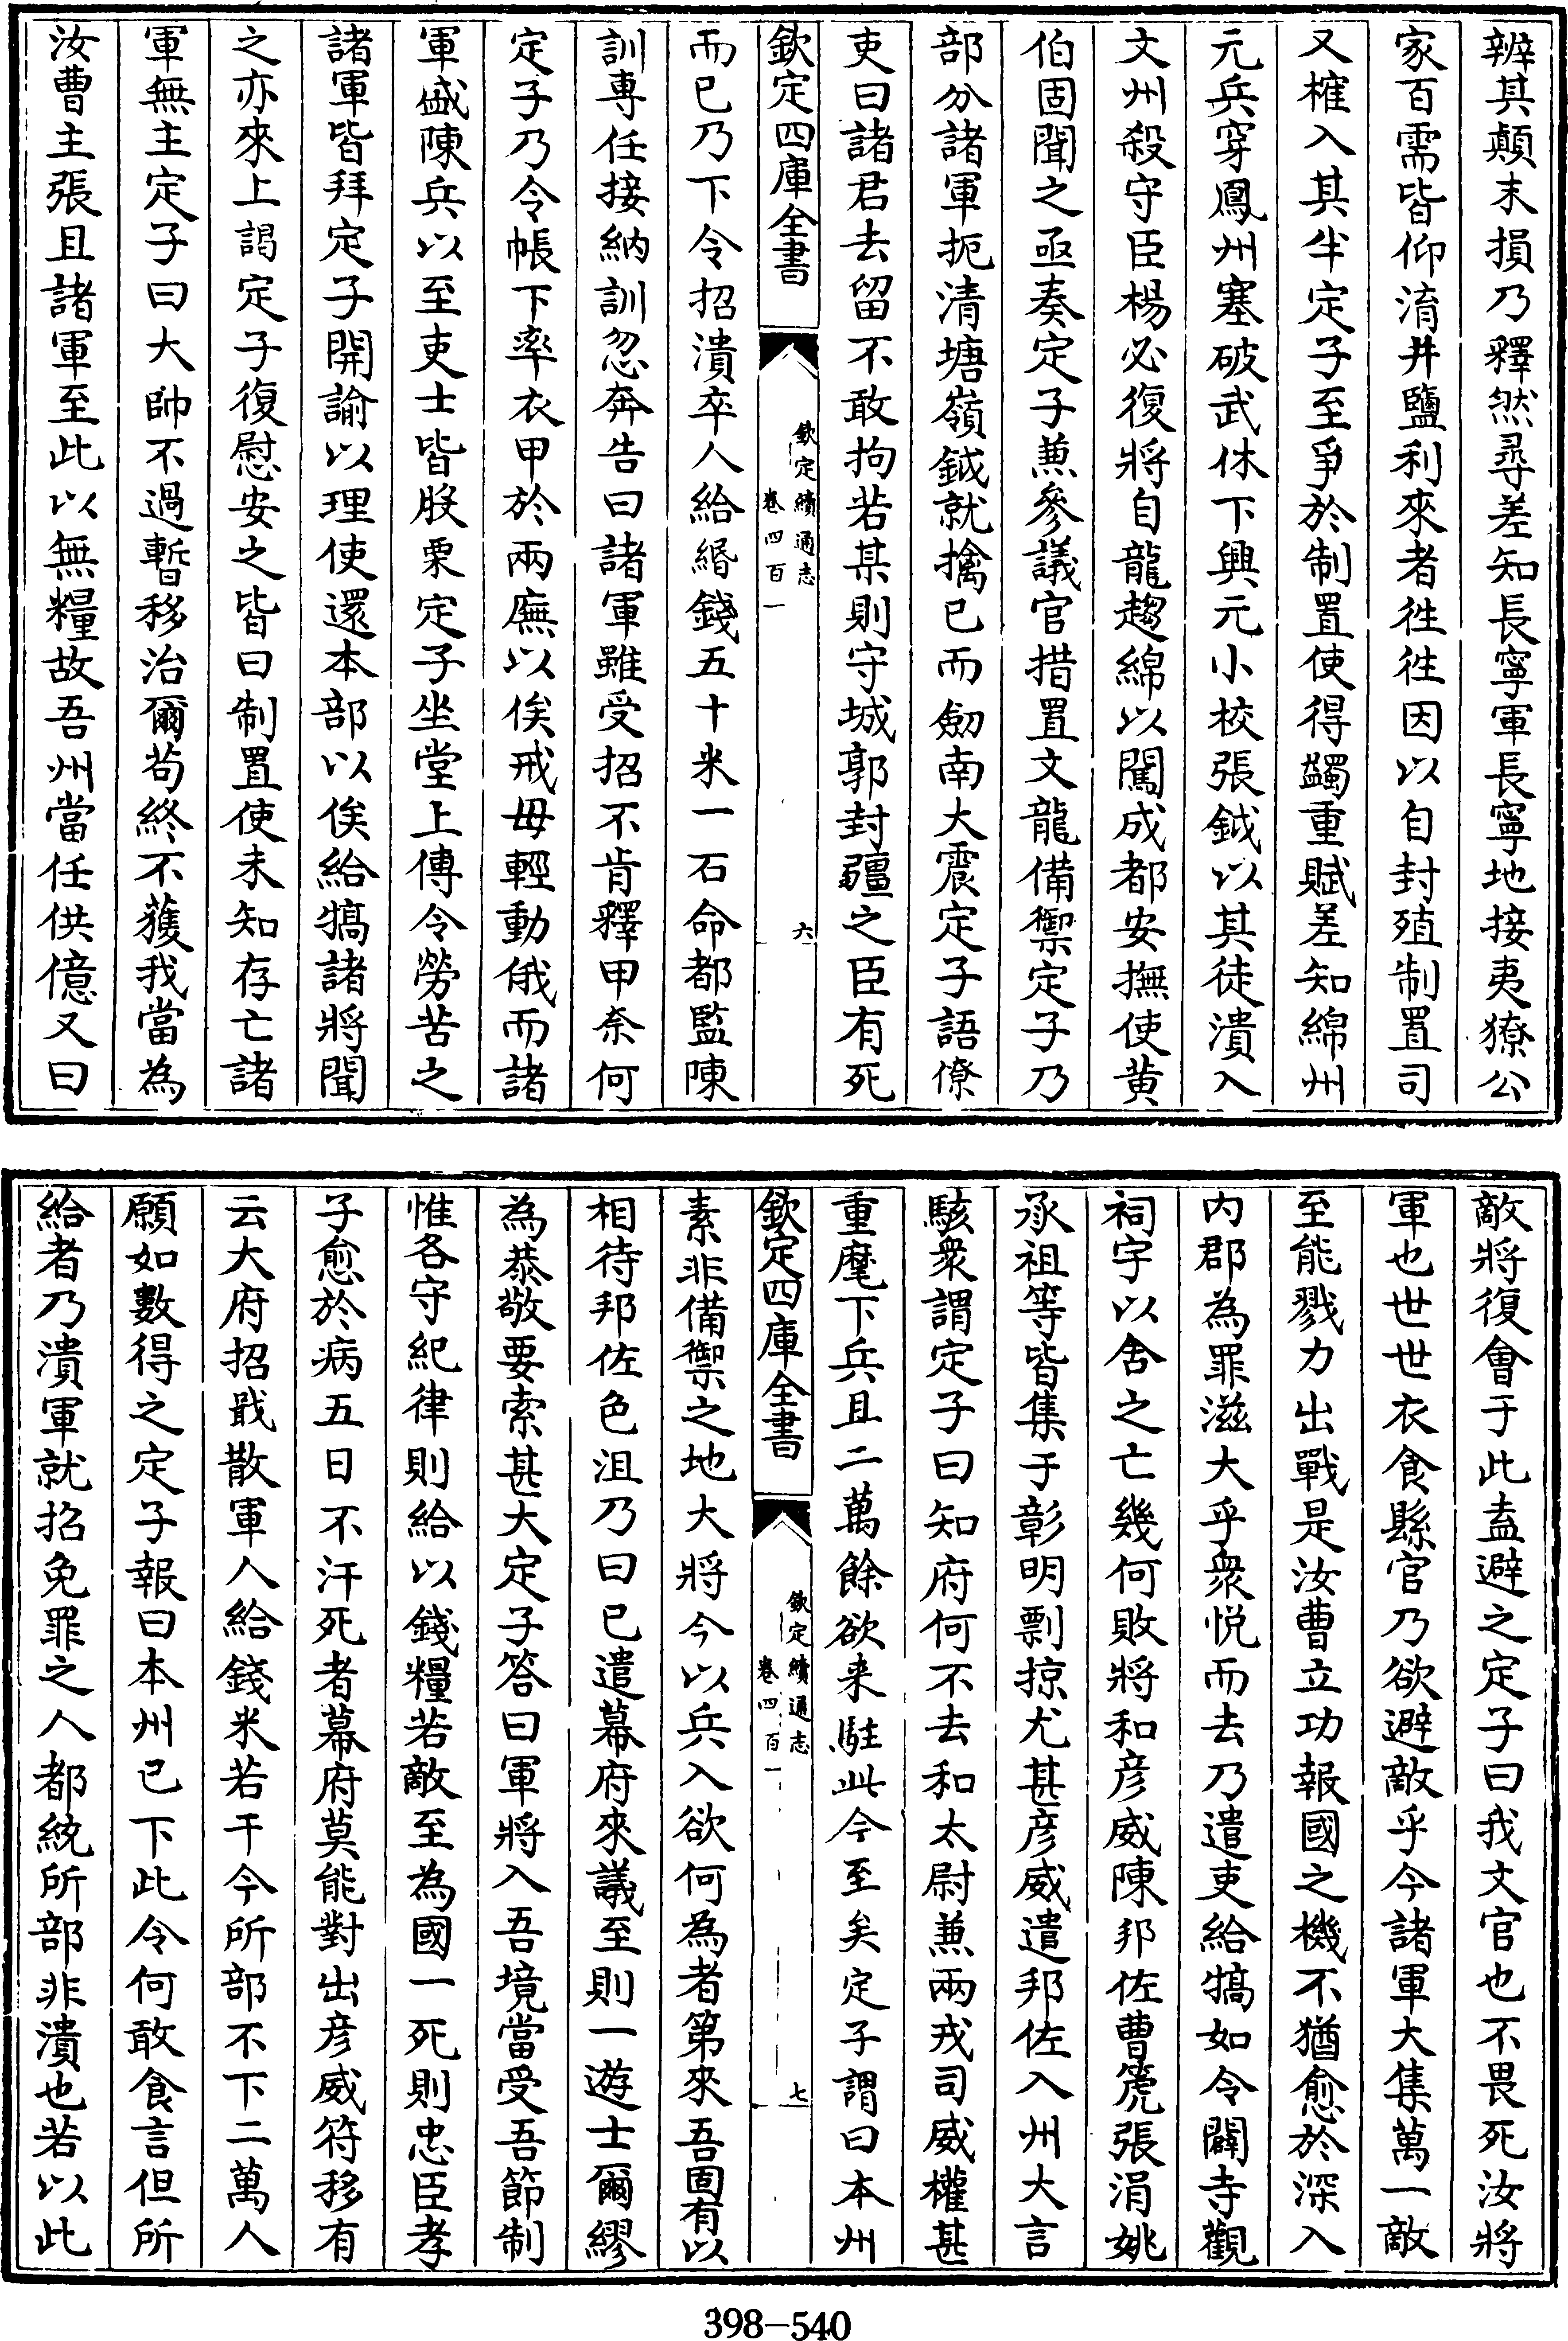 辨其顛末損乃釋然尋差知長寧軍長寧地接夷獠公
家百需皆仰淯井鹽利來者徃徃因以自封殖制置司
又榷入其半定子至爭於制置使得蠲重賦差知綿州
元兵穿鳳州塞破武休下興元小校張鉞以其徒潰入
文州殺守臣楊必復將自龍趨綿以闖成都安撫使黄
伯固聞之亟奏定子兼參議官措置文龍備禦定子乃
部分諸軍扼清塘嶺鉞就擒已而劒南大震定子語僚
吏曰諸君去留不敢拘若某則守城郭封疆之臣有死
欽定四庫全書
欽定續通志
卷四百一
六
而已乃下令招潰卒人給緡錢五十米一石命都監陳
訓專任接納訓忽奔告曰諸軍雖受招不肯釋甲奈何
定子乃令帳下率衣甲於兩廡以俟戒毋輕動俄而諸
軍盛陳兵以至吏士皆股栗定子坐堂上傳令勞苦之
諸軍皆拜定子開諭以理使還本部以俟給犒諸將聞
之亦來上謁定子復慰安之皆曰制置使未知存亡諸
軍無主定子曰大帥不過暫移治爾茍終不獲我當為
汝曹主張且諸軍至此以無糧故吾州當任供億又曰
敵將復會于此盍避之定子曰我文官也不畏死汝將
軍也世世衣食縣官乃欲避敵乎今諸軍大集萬一敵
至能戮力出戰是汝曹立功報國之機不猶愈於深入
内郡為罪滋大乎衆悅而去乃遣吏給犒如令闢寺觀
祠宇以舍之亡幾何敗將和彦威陳邦佐曹篪張涓姚
承祖等皆集于彰明剽掠尤甚彦威遣邦佐入州大言
駭衆謂定子曰知府何不去和太尉兼兩戎司威權甚
重麾下兵且二萬餘欲来駐此今至矣定子謂曰本州
欽定四庫全書
欽定續通志
卷四百一
七
素非備禦之地大將今以兵入欲何為者第來吾固有以
相待邦佐色沮乃曰已遣幕府來議至則一遊士爾繆
為恭敬要索甚大定子答曰軍將入吾境當受吾節制
惟各守紀律則給以錢糧若敵至為國一死則忠臣孝
子愈於病五日不汗死者幕府莫能對出彦威符移有
云大府招戢散軍人給錢米若干今所部不下二萬人
願如數得之定子報曰本州已下此令何敢食言但所
給者乃潰軍就招免罪之人都統所部非潰也若以此
398—540